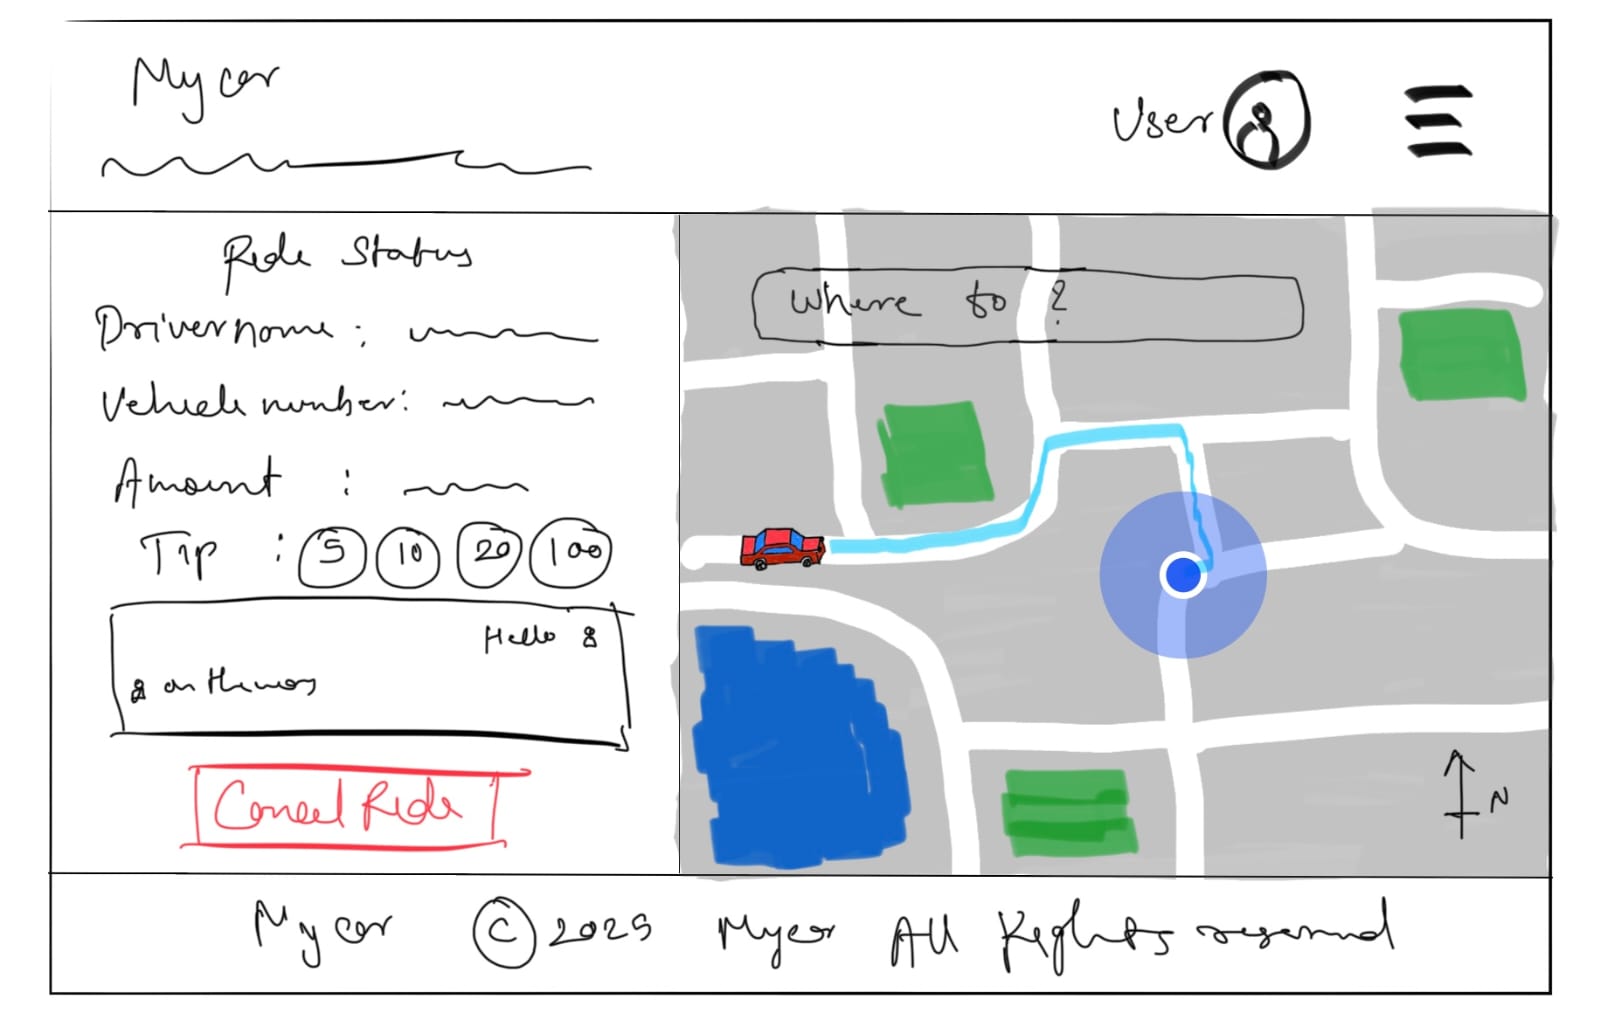 My car
User
Ride Status
Driver name :
Vehicle number :
Amount :
Tip : 5 10 20 100
Hello
on the way
Cancel Ride
Where to ?
N
My car © 2025 Mycar All Rights reserved